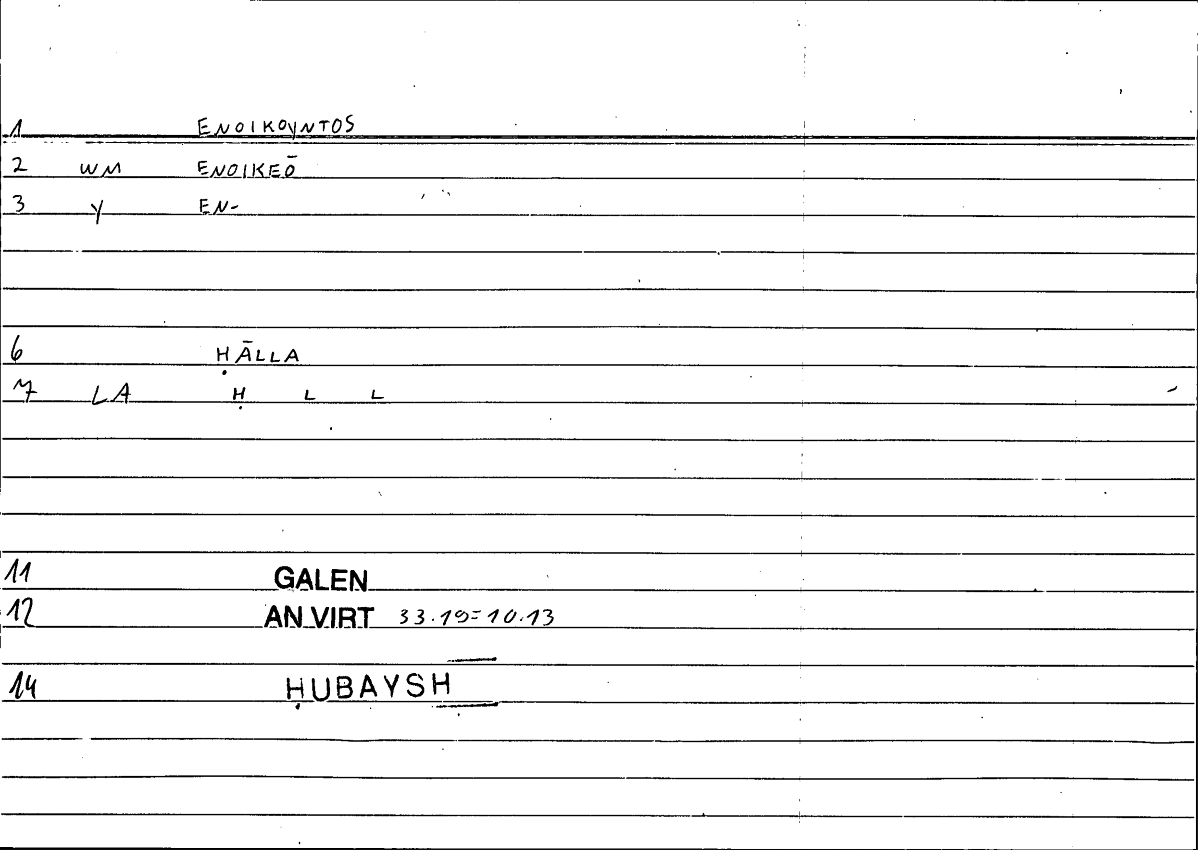 1 ENOIKOYNTOS
2 WM ENOIKEŌ
3 Y EN-
6 ḤĀLLA
7 LA Ḥ L L
11 GALEN
12 AN VIRT 33.19=10.13
14 ḤUBAYSH